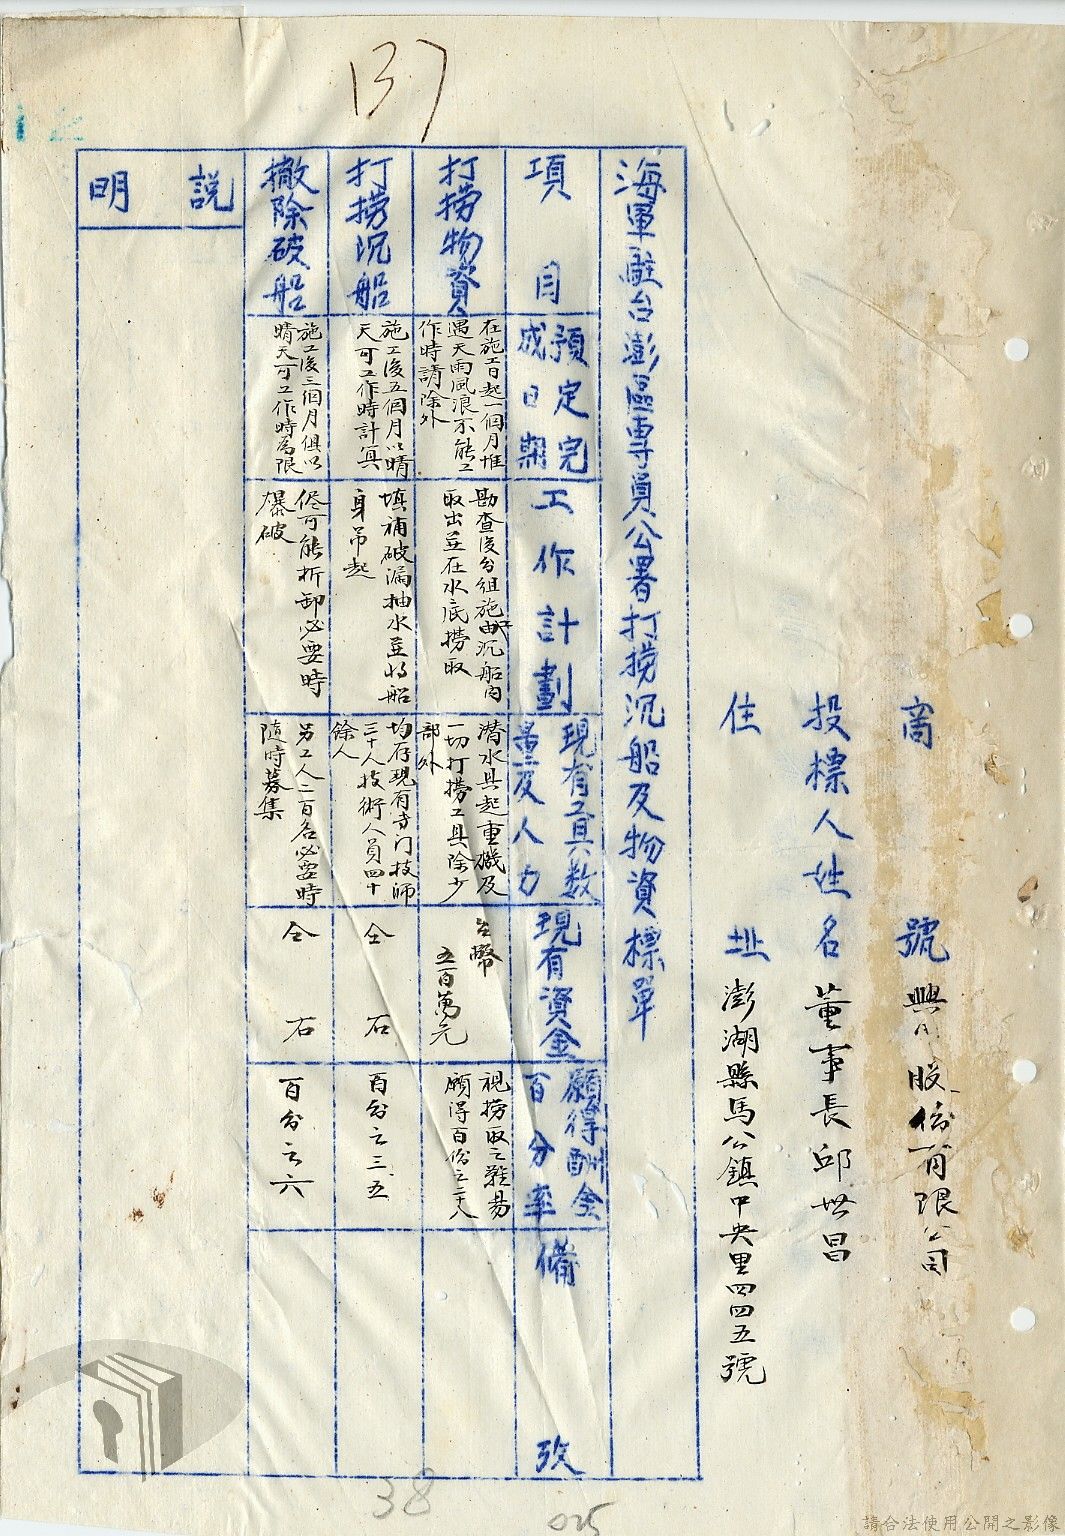 137
商號
股份有限公司
投標人姓名 董事長邱世昌
住址 澎湖縣馬公鎮中央里四四五號
海軍駐台澎區專員公署打撈沉船及物資標單
項目
預定完
成日期
工作計劃
現有工具数
量及人力
現有資金
願得酬金
百分率
備攷
打撈物資
在施工日起一個月惟
遇天雨風浪不能工
作時請除外
勘查後分組施
沉船内
取出並在水底撈取
潜水具起重機及
一切打撈工具除少
部外
台幣
五百萬元
視撈取之難易
願得百份之二十八
打撈沉船
施工後五個月以晴
天可工作時計算
填補破漏抽水並将船
身吊起
均存現有专门技師
三十人技術人員四十
餘人
仝右
百分之三.五
撤除破船
施工後三個月俱以
晴天可工作時為限
侭可能折卸必要時
爆破
另工人二百名必要時
随時募集
仝右
百分之六
説明
38
025
請合法使用公開之影像